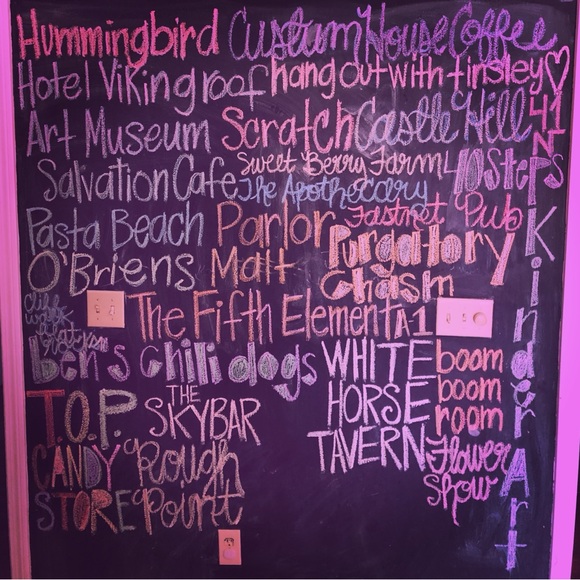 Hummingbird Custom House Coffee
Hotel Viking roof hang out with tinsley♡
Art Museum Scratch Castle Hill 41 N
Salvation Cafe Sweet Berry Farm 40 Steps
The Apothecary
Pasta Beach Parlor Fastnet Pub
O'Briens Malt Purgatory Chasm
Cliff walk
The Fifth Element A1
Ben's chili dogs WHITE HORSE TAVERN boom boom room
T.O.P. THE SKYBAR
CANDY STORE Rough Point Flower Show
Kinder Art